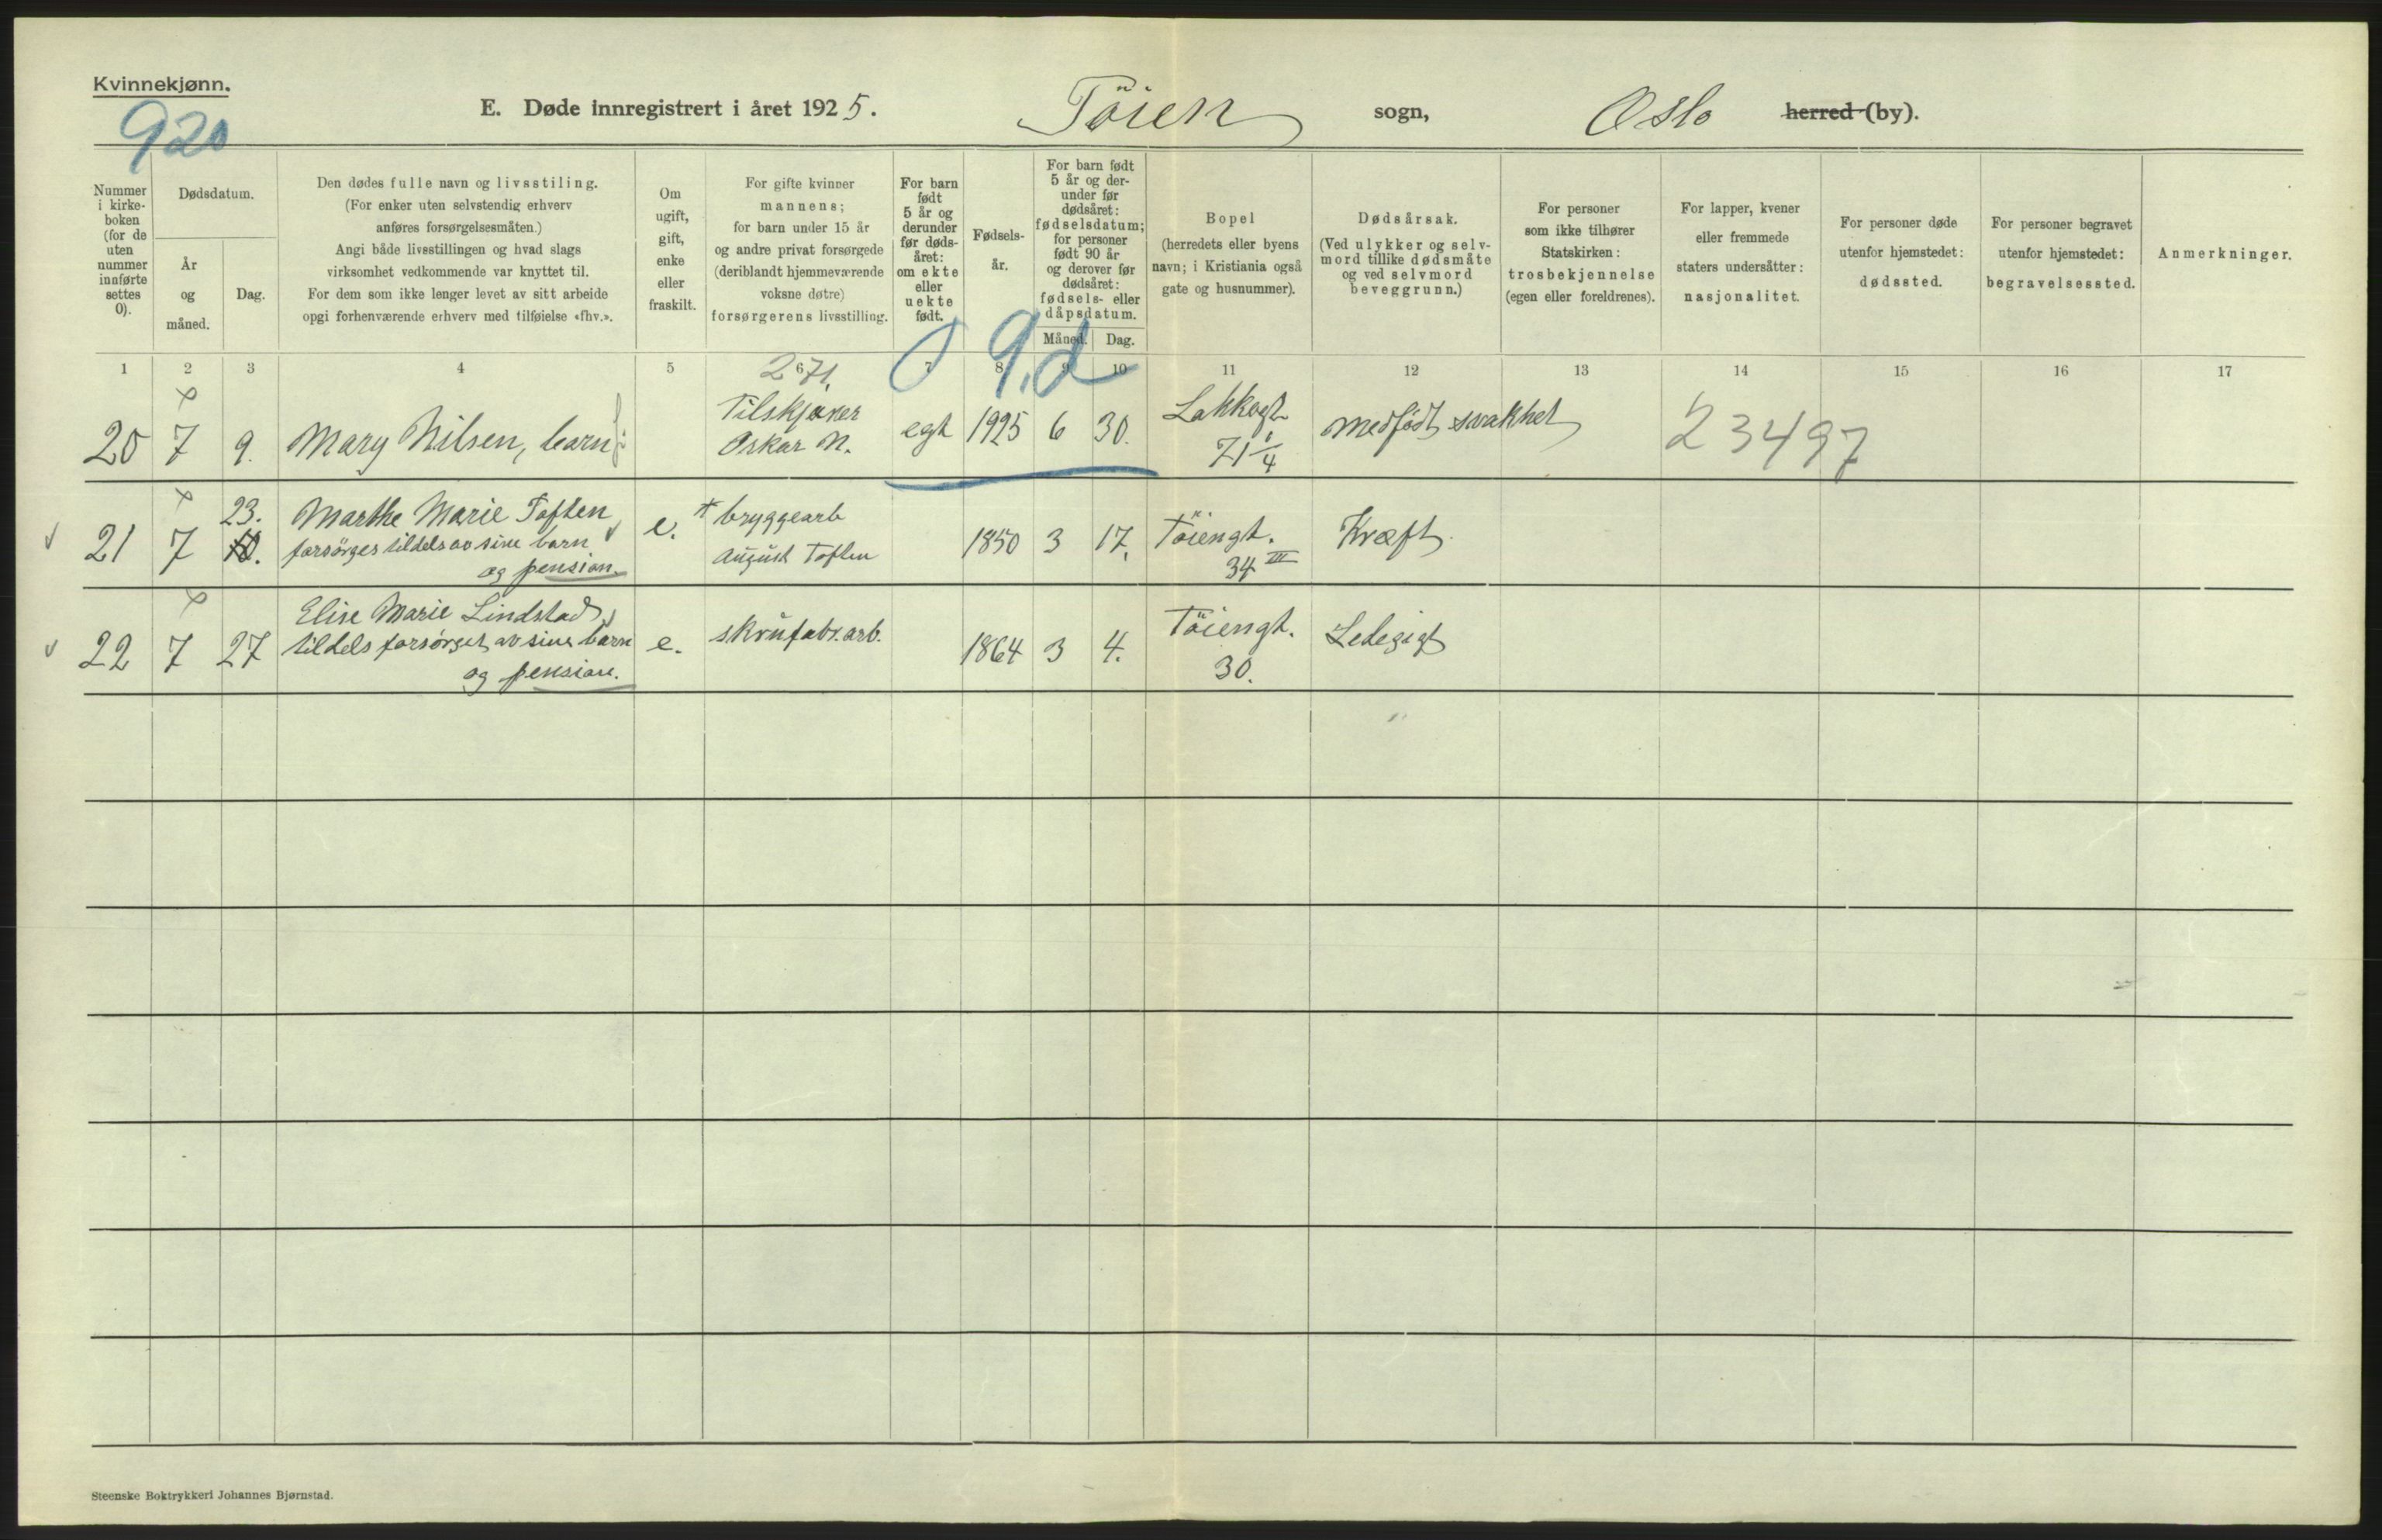 Kvinnekjønn.
920
E. Døde innregistrert i året 1925. Töien sogn, Oslo herred (by).
Nummer
i kirke-
boken
(for de
uten
nummer
innførte
settes
0).
Dødsdatum.
År
og
måned.
Dag.
Den dødes fulle navn og livsstiling.
(For enker uten selvstendig erhverv
anføres forsørgelsesmåten.)
Angi både livsstillingen og hvad slags
virksomhet vedkommende var knyttet til.
For dem som ikke lenger levet av sitt arbeide
opgi forhenværende erhverv med tilføielse «fhv.».
Om
ugift,
gift,
enke
eller
fraskilt.
For gifte kvinner
mannens;
for barn under 15 år
og andre privat forsørgede
(deriblandt hjemmeværende
voksne døtre)
forsørgerens livsstilling.
For barn
født
5 år og
derunder
før døds-
året:
om ekte
eller
uekte
født.
Fødsels-
år.
For barn født
5 år og der-
under før
dødsåret:
fødselsdatum;
for personer
født 90 år
og derover før
dødsåret:
fødsels- eller
dåpsdatum.
Måned. Dag.
Bopel
(herredets eller byens
navn; i Kristiania også
gate og husnummer).
Dødsårsak.
(Ved ulykker og selv-
mord tillike dødsmåte
og ved selvmord
beveggrunn.)
For personer
som ikke tilhører
Statskirken:
trosbekjennelse
(egen eller foreldrenes).
For lapper, kvener
eller fremmede
staters undersåtter:
nasjonalitet.
For personer døde
utenfor hjemstedet:
dødssted.
For personer begravet
utenfor hjemstedet:
begravelsessted.
Anmerkninger.
1 2 3 4 5 6 7 8 9 10 11 12 13 14 15 16 17
271. 0 9.d
20 7 9. Mary Nilsen, barn
Tilskjærer
Oskar N.
egt 1925 6 30.
Lakkegt
71 1/4
medfødt svakhet
23497
21 7 23.
10.
Marthe Marie Toften
forsörges tildels av sine barn
og pension.
e.
+ bryggearb
August Toften
1850 3 17.
Töiengt.
34 III
Kræft.
22 7 27
Elise Marie Lindstad
tildels forsörget av sine barn
og pension.
e. skrufabr.arb.
1864 3 4.
Töiengt.
30.
Ledegigt
Steenske Boktrykkeri Johannes Bjørnstad.